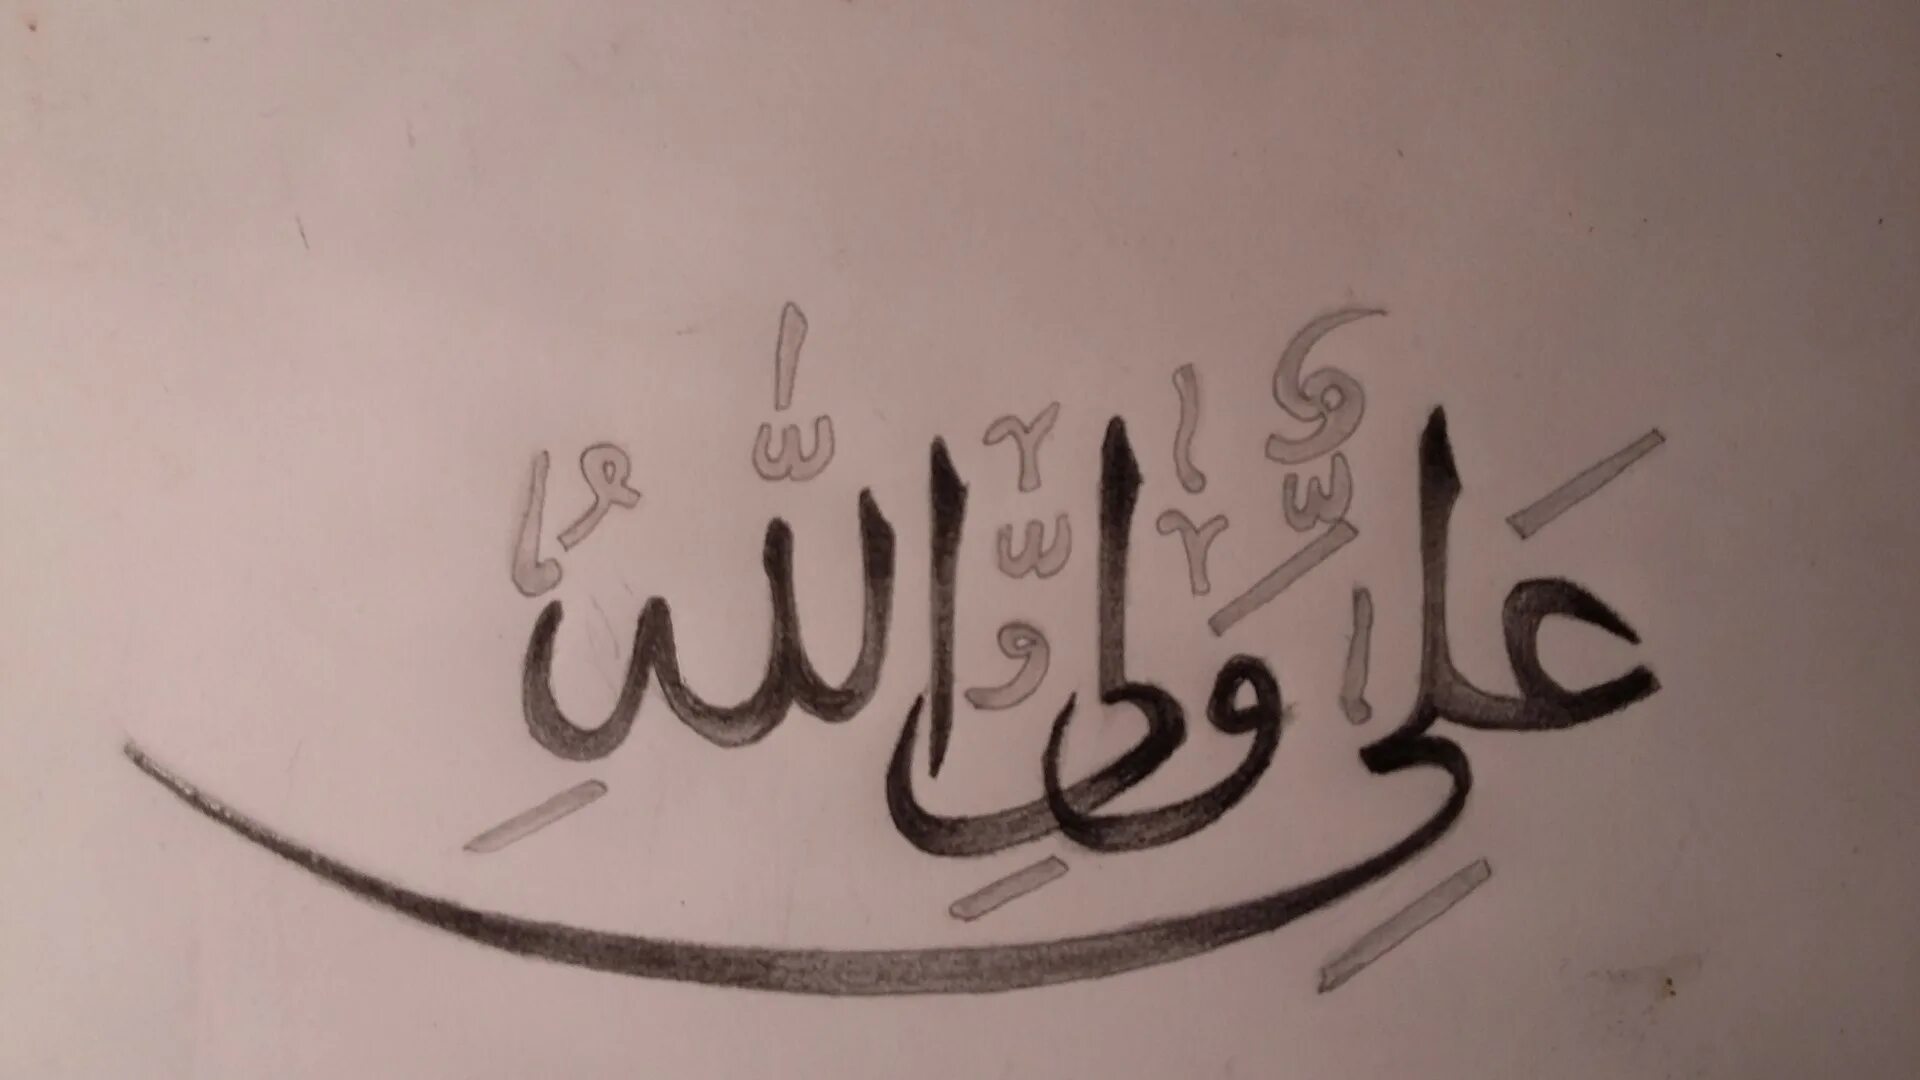 عَلِيٌّ وَلِيُّ اللّٰهِ